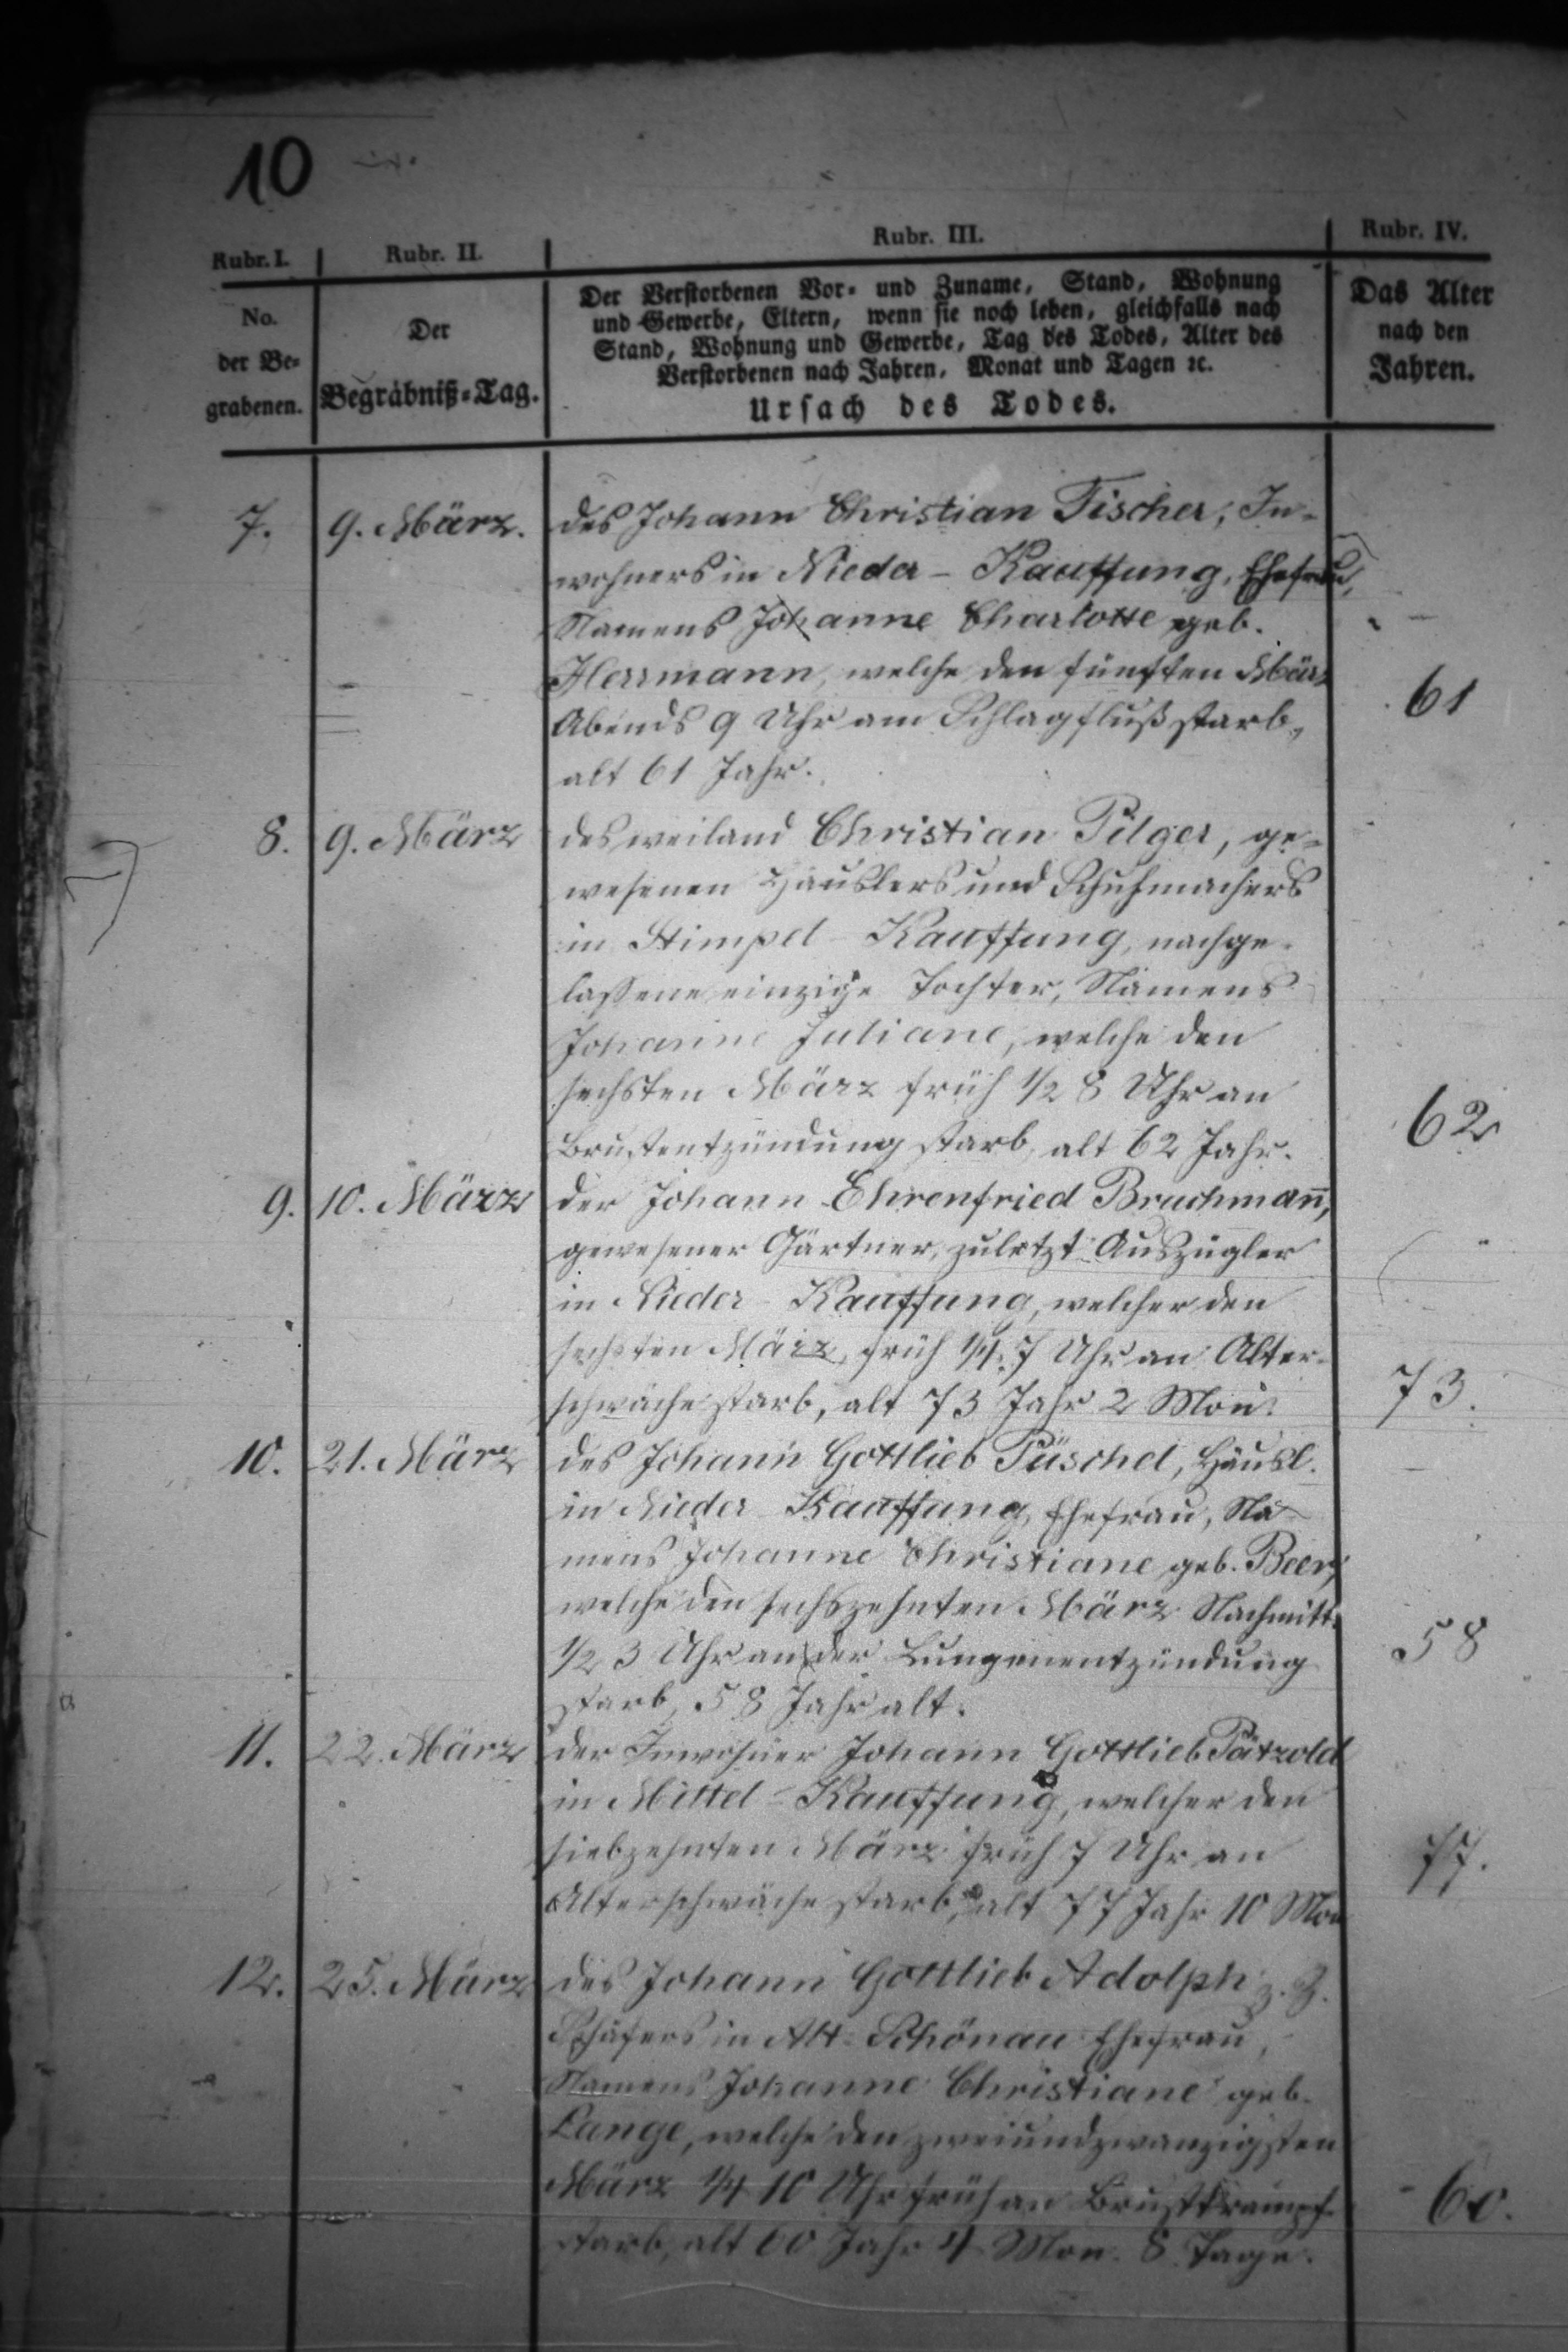 10
Rubr. I. Rubr. II. Rubr. III. Rubr. IV.
No. der Be-grabenen.
Der Begräbniß-Tag.
Der Verstorbenen Vor- und Zuname, Stand, Wohnung
und Gewerbe, Eltern, wenn sie noch leben, gleichfalls nach
Stand, Wohnung und Gewerbe, Tag des Todes, Alter des
Verstorbenen nach Jahren, Monat und Tagen ꝛc.
Ursach des Todes.
Das Alter
nach den
Jahren.
7. 9. März. des Johann Christian Fischer, In-
wohners in Nieder-Kauffung, Ehefrau,
Namens Johanne Charlotte geb.
Herrmann, welche den fünften März
Abends 9 Uhr am Schlagfluß starb, 61
alt 61 Jahr.
8. 9. März des weiland Christian Pilger, ge-
wesenen Häuslers und Schuhmachers
in Stimpel-Kauffung, nachge-
lassene einzige Tochter, Namens
Johanne Juliane, welche den
sechsten März früh 1/2 8 Uhr an
Brustentzündung starb, alt 62 Jahr. 62
9. 10. März der Johann Ehrenfried Bruchmañ,
gewesener Gärtner, zuletzt Auszügler
in Nieder-Kauffung, welcher den
sechsten März, früh 1/4 7 Uhr an Alter-
schwäche starb, alt 73 Jahr 2 Mon. 73.
10. 21. März des Johann Gottlieb Püschel, Häusl.
in Nieder-Kauffung, Ehefrau, Na-
mens Johanne Christiane geb. Beer,
welche den sechszehnten März Nachmitt.
1/2 3 Uhr an der Lungenentzündung 58
starb, 58 Jahr alt.
11. 22. März der Inwohner Johann Gottlieb Pätzold
in Mittel-Kauffung, welcher den
siebzehnten März früh 7 Uhr an
Alterschwäche starb, alt 77 Jahr 10 Mon 77.
12. 25. März des Johann Gottlieb Adolph z. Z.
Schäfers in Alt-Schönau Ehefrau,
Namens Johanne Christiane geb.
Lange, welche den zweiundzwanzigsten
März 1/4 10 Uhr früh an Brustkrampf
starb, alt 60 Jahr 4 Mon. 8 Tage. 60.